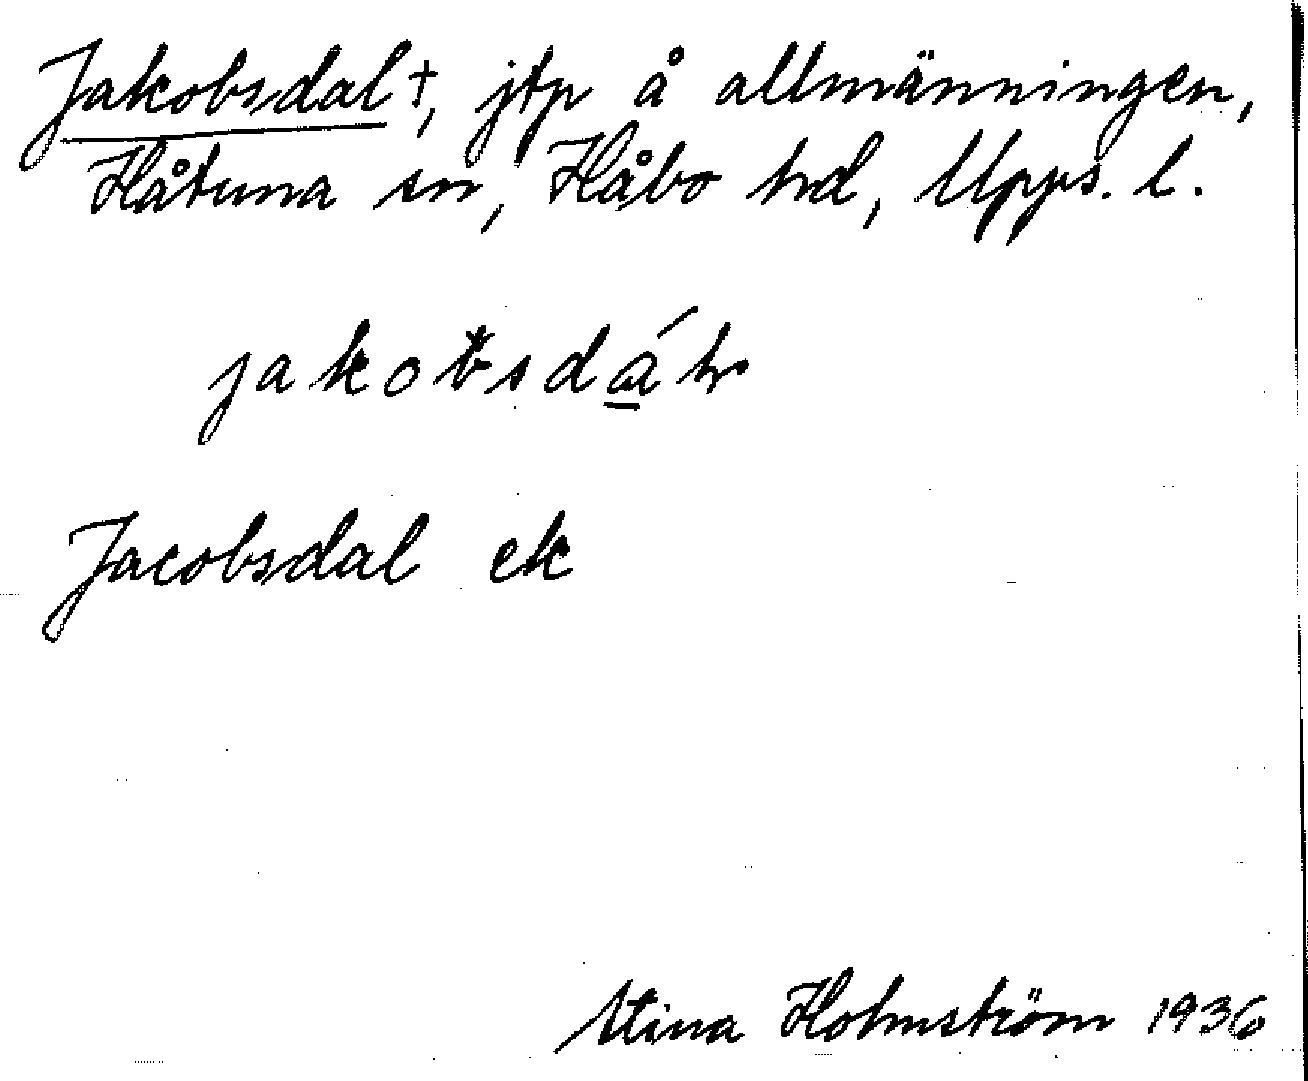 Jakobsdal †, jtp å allmänningen,
Håtuna sn, Håbo hd, Upps. l.
Jacobsdal ek
Stina Holmström 1936